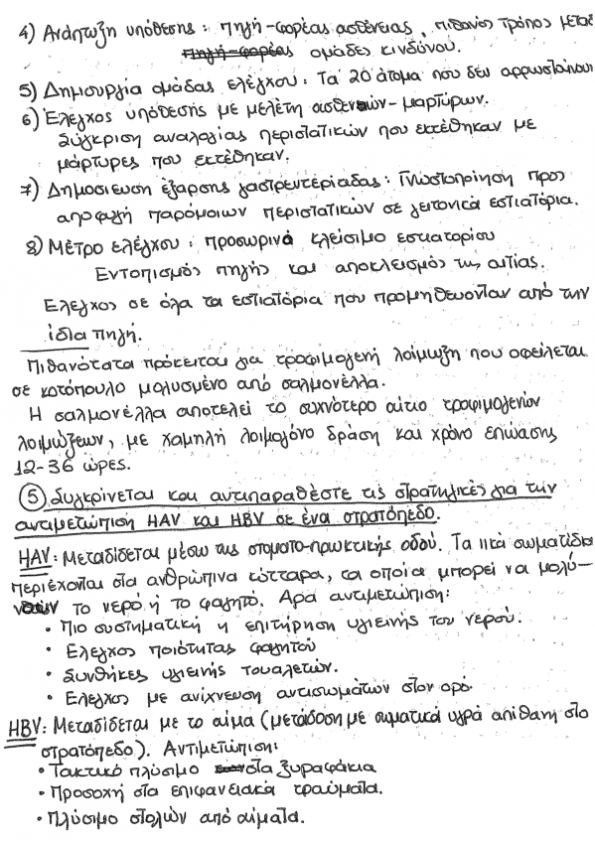 4) Ανάπτυξη υπόθεσης: πηγή-φορέας ασθένειας, πιθανός τρόπος μετάδ
πηγή-φορέας ομάδες κινδύνου.
5) Δημιουργία ομάδας ελέγχου: Τα 20 άτομα που δεν αρρωσταίνουν
6) Έλεγχος υπόθεσης με μελέτη ασθενών-μαρτύρων.
Σύγκριση αναλογίας περιστατικών που εκτέθηκαν με
μάρτυρες που εκτέθηκαν.
7) Δημοσίευση έξαρσης γαστρεντερίαδας: Γνωστοποίηση προς
αποφυγή παρόμοιων περιστατικών σε γειτονικά εστιατόρια.
8) Μέτρο ελέγχου: προσωρινά κλείσιμο εστιατορίου
Εντοπισμός πηγής και αποκλεισμός της αιτίας.
Έλεγχος σε όλα τα εστιατόρια που προμηθεύονταν από την
ίδια πηγή.
Πιθανότατα πρόκειται για τροφιμογενή λοίμωξη που οφείλεται
σε κοτόπουλο μολυσμένο από σαλμονέλλα.
Η σαλμονέλλα αποτελεί το συχνότερο αίτιο τροφιμογενών
λοιμώξεων, με χαμηλή λοιμογόνο δράση και χρόνο επώασης
12-36 ώρες.
5 Συγκρίνεται και αντιπαραθέστε τις στρατηγικές για την
αντιμετώπιση HAV και HBV σε ένα στρατόπεδο.
HAV: Μεταδίδεται μέσω της στοματο-πρωκτικής οδού. Τα ιικά σωματίδια
περιέχονται στα ανθρώπινα κύτταρα, τα οποία μπορεί να μολύ-
νουν το νερό ή το φαγητό. Άρα αντιμετώπιση:
• Πιο συστηματική η επιτήρηση υγιεινής του νερού.
• Έλεγχος ποιότητας φαγητού
• Συνθήκες υγιεινής τουαλετών.
• Έλεγχος με ανίχνευση αντισωμάτων στον ορό.
HBV: Μεταδίδεται με το αίμα (μετάδοση με σωματικά υγρά απίθανη στο
στρατόπεδο). Αντιμετώπιση:
• Τακτικό πλύσιμο στα ξυραφάκια
• Προσοχή στα επιφανειακά τραύματα.
• Πλύσιμο στολών από αίματα.